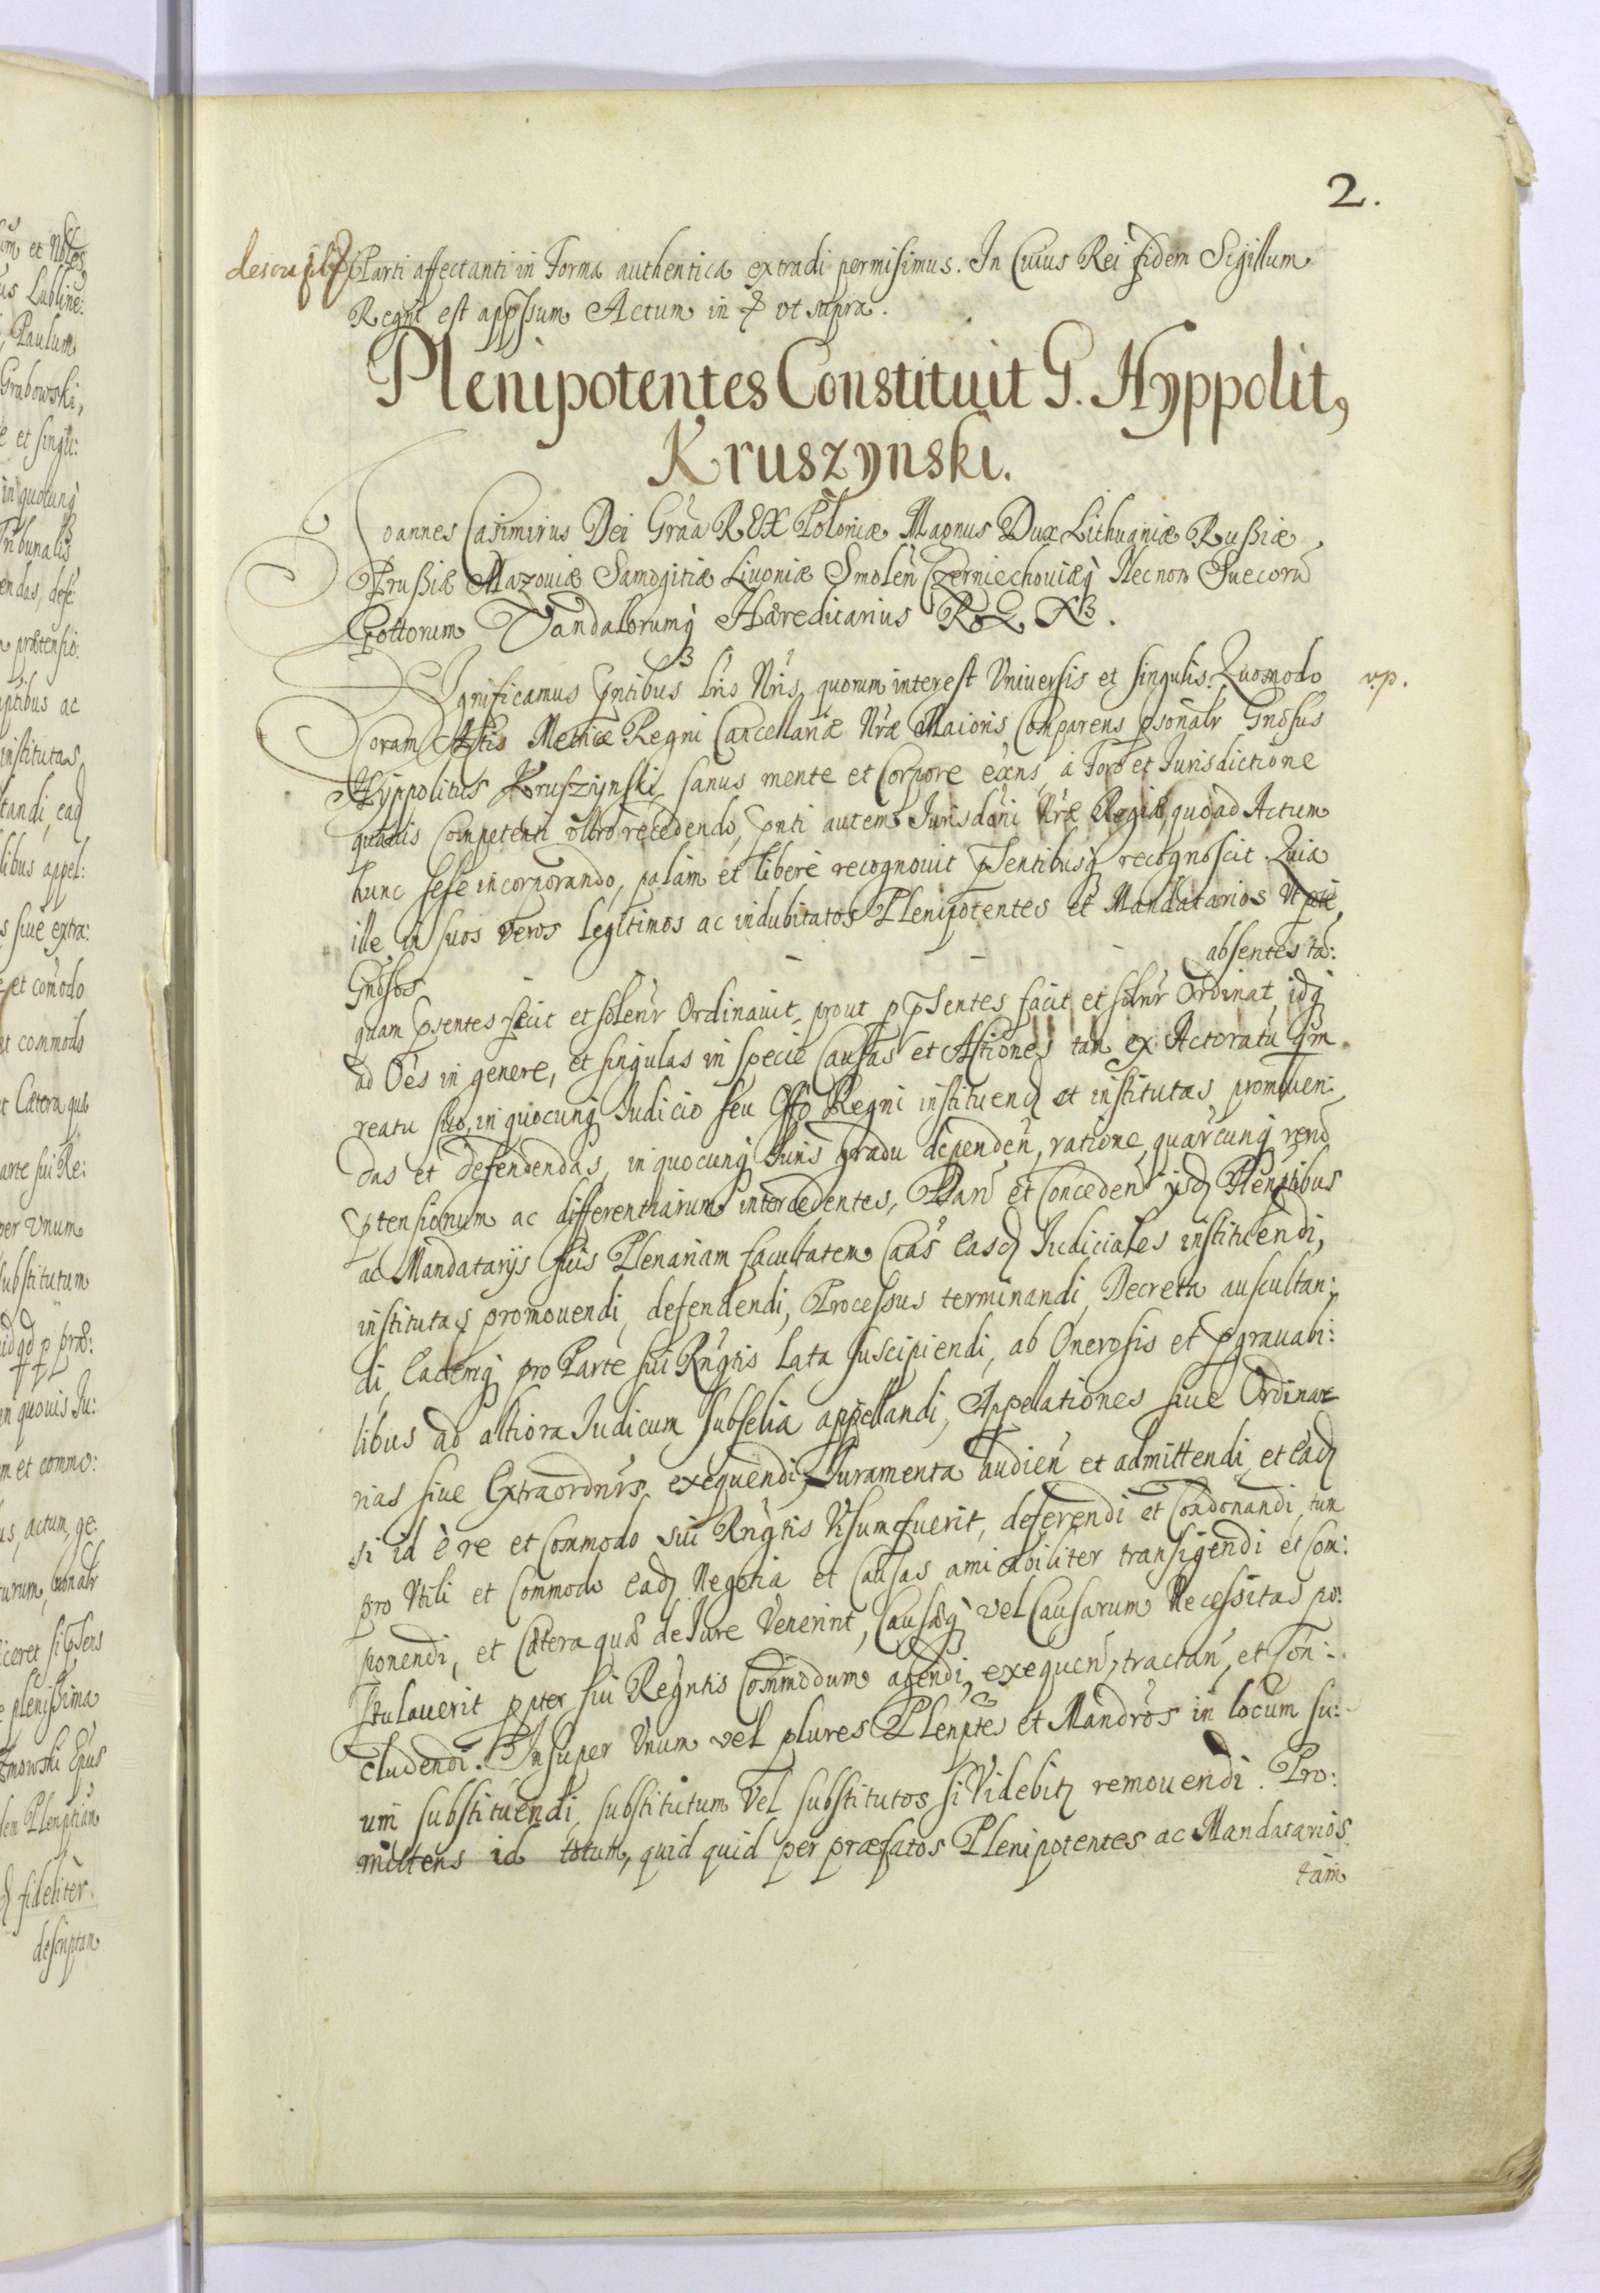 2.
descriptã Parti affectanti in Forma authentica extradi permisimus. In Cuius Rei fidem Sigillum
Regni est appssum Actum in & ut supra.
Plenipotentes Constituit G. Hyppolit,
Kruszynski.
Joannes Casimirus Dei Grãa REX Poloniæ Magnus Dux Lithuaniæ Russiæ
Prussiæ Mazouiæ Samogitiæ Liuoniæ Smolen̄ Czerniechouiæq̃ Necnon Suecorũ
Gottorum Vandalorumq̃ Hæreditarius
Significamus p̃ntibus Lr̃is Nr̃is, quorum interest Vniuersis et singulis. Quomodo
v.p.
Coram Actis Metricæ Regni Cancellariæ Nr̃æ Maioris Comparens p̃sonalr̃ Gnõsus
Hyppolitus Kruszynski, sanus mente et Corpore exns̃, à Foro et Iurisdictione
quauis Competenti ultro recedendo, p̃nti autem Iurisdõni Nr̃æ Regiæ, quoad Actum
hunc sese incorporando, palam et liberè recognouit p̃sentibusq̃ recognoscit. Quia
ille in suos veros legitimos ac indubitatos Plenipotentes et Mandatarios Npte,
Gnõsos - - - absentes tã:
quam p̃sentes fecit et solenr̃ Ordinauit, prout p p̃sentes facit et solnr̃ Ordinat, idq̃
ad Oẽs in genere, et singulas in specie Causas et Actiones tam ex Actoratu q̃m
reatu suo, in quocunq̃ Iudicio seu Offo Regni instituend et institutas promouen:
das et defendendas, in quocunq̃ Iuris gradu dependen̄, ratione, quar̃cunq̃ rerũ
p̃tensionum ac differentiarum intercedentes, Dan̄ et Conceden̄ ijsd Plenptibus
ac Mandatarijs suis Plenariam facultatem Cãas easd Iudiciales instituendi,
institutas promouendi, defendendi, Processus terminandi, Decreta auscultan:
di, Eademq̃ pro Parte sui Rñgtis Lata suscipiendi, ab Onerosis et p̃grauabi:
libus ad altiora Iudicum Subselia appellandi, Appellationes siue Ordina:
rias siue Extraordnrs exequendi, Iuramenta audien̄ et admittendi, et Ead
si id è re et Commodo sui Rñgtis Visum fuerit, deferendi et Condonandi, tum
pro Vtili et Commodo ead Negotia et Causas amicabiliter transigendi et Com:
ponendi, et Cætera quæ de Iure Venerint, Causæq̃ vel Causarum Necessitas po:
stulauerit ppter sui Regntis Commodum agendi, exequen̄, tractan̄, et Con:
cludendi. Insuper Vnum vel plures Plenpte et Mandros in locum su:
um substituendi, substitutum Vel substitutos si Videbit removendi. Pro:
mittens id totum, quid quid per præfatos Plenipotentes ac Mandatarios
tam